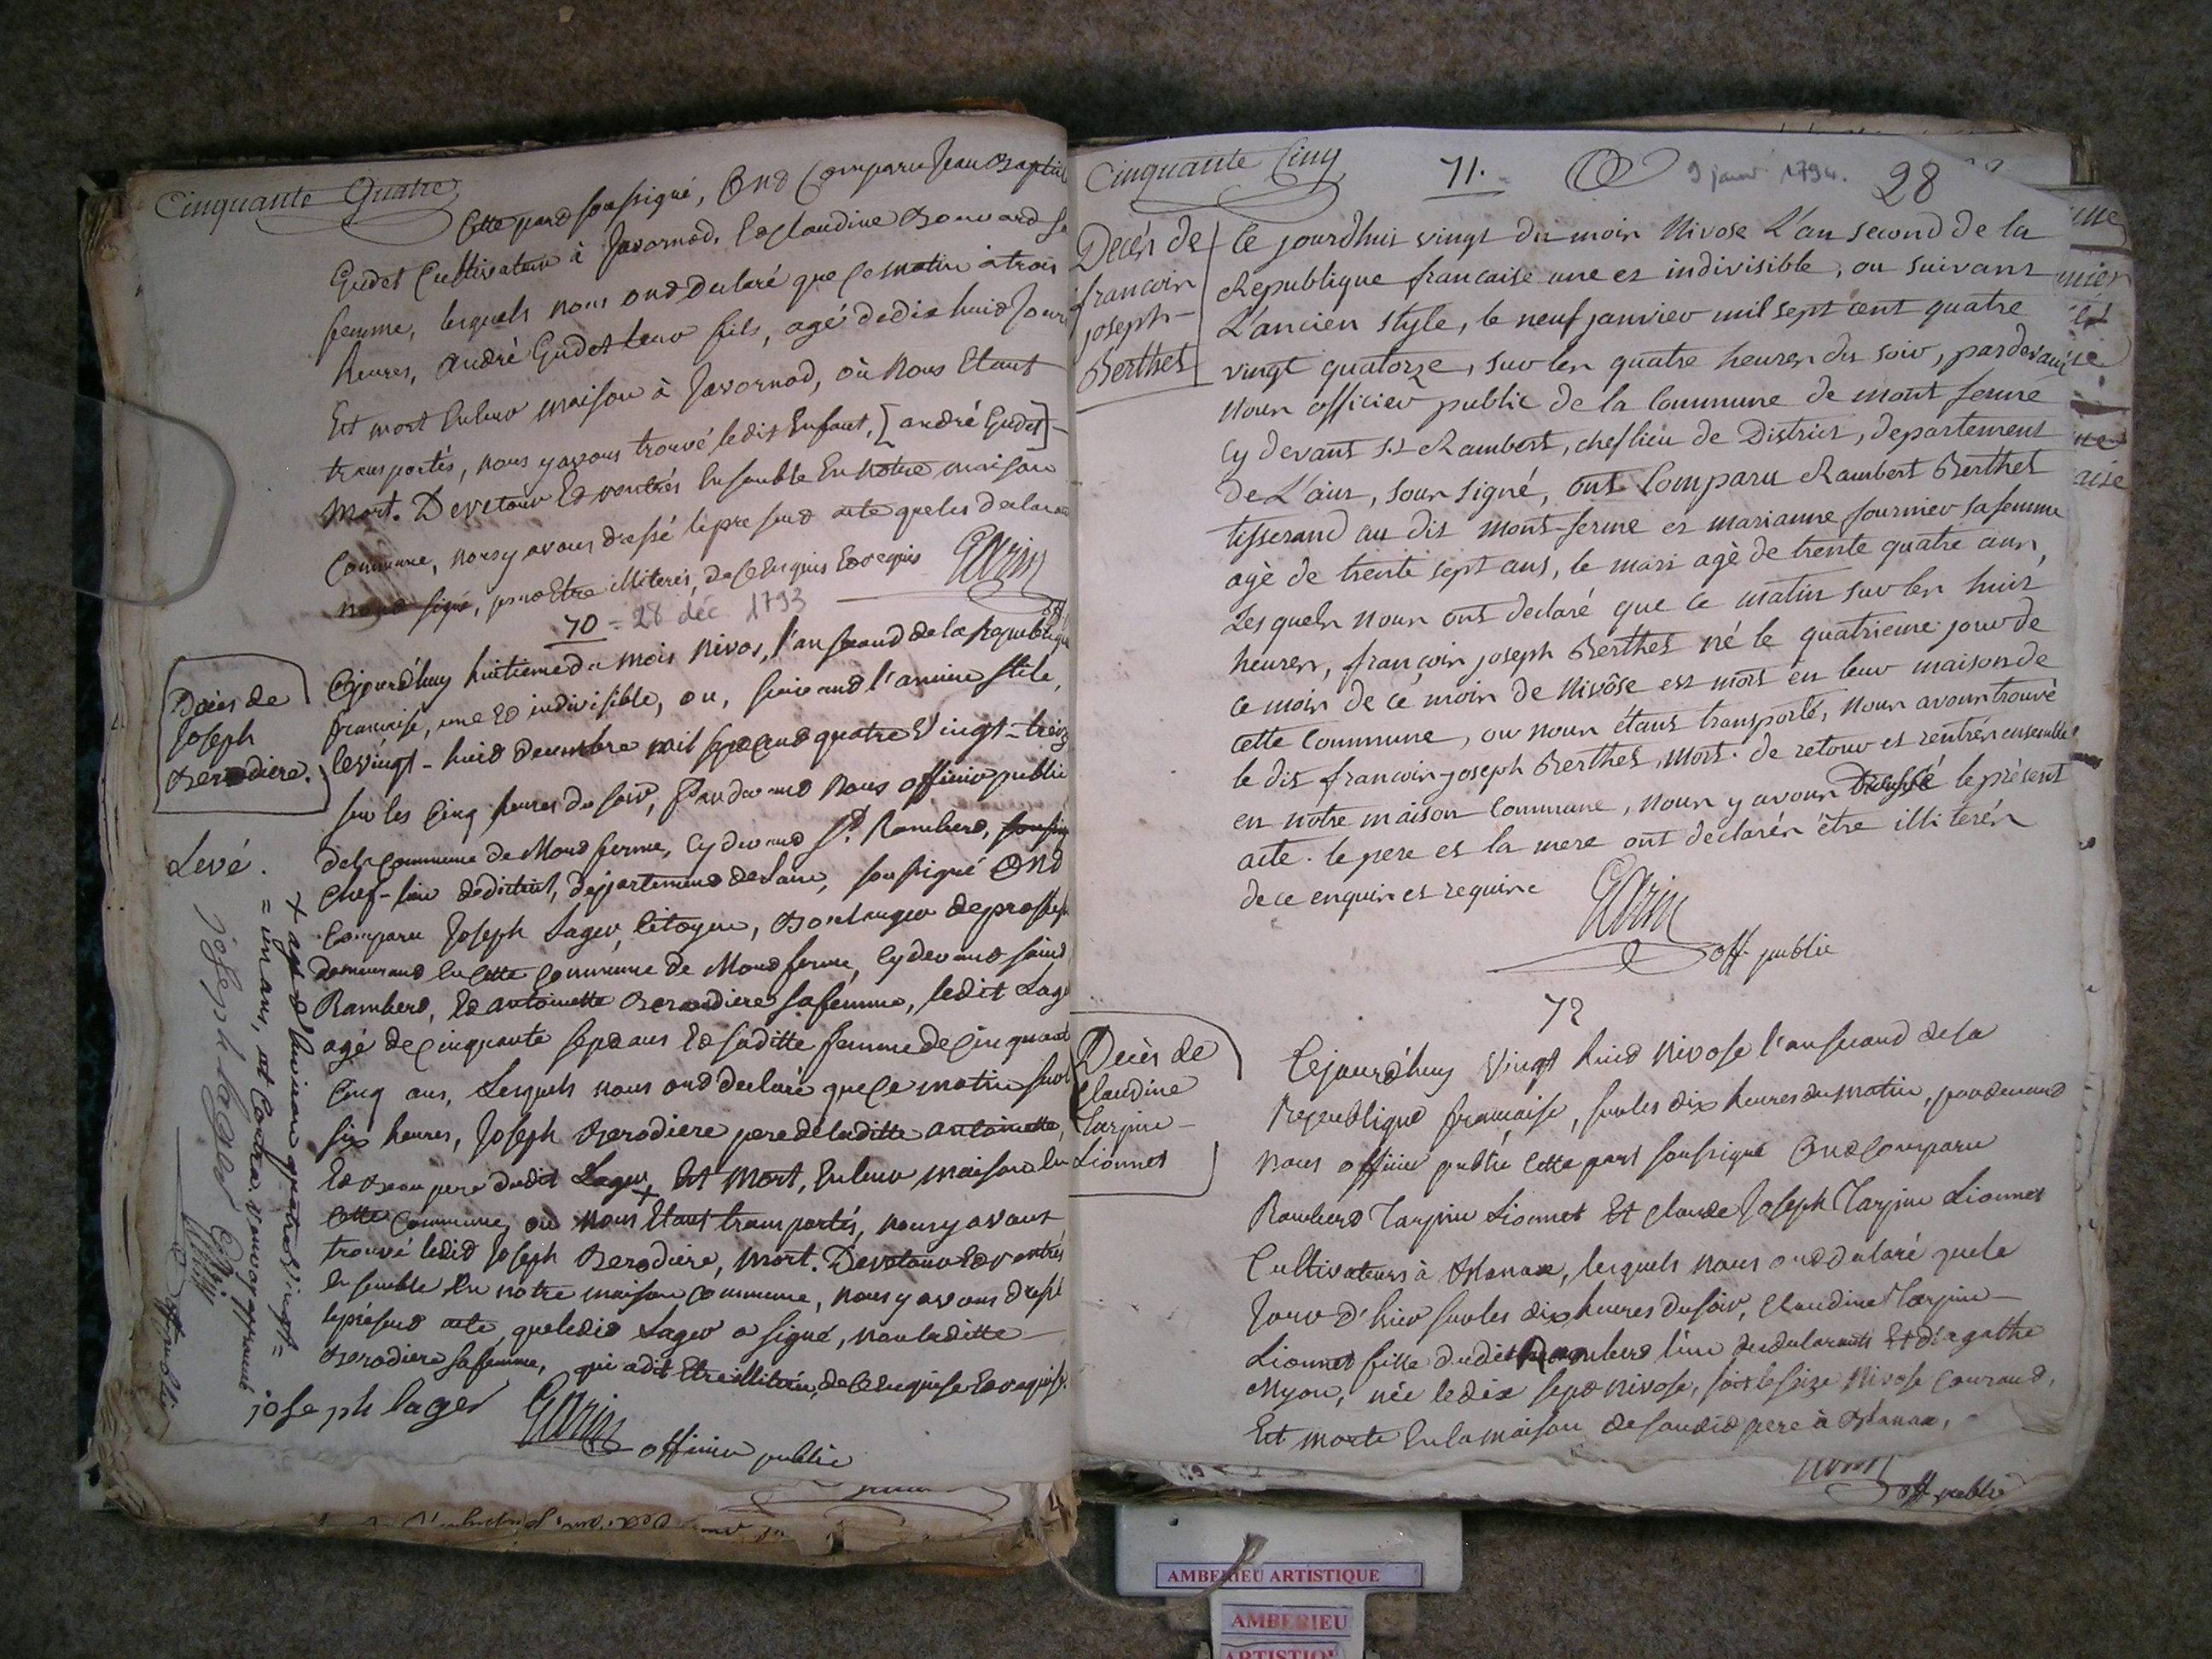 Cinquante Quatre
Cette part soussigné, Ond Comparu Jean Baptist
Gudet Cultivateur à Javornod, Et Claudine Bouvard sa
femme, lesquels nous ond declaré que ce matin à trois
heures, andré Gudet leur fils, agé de dix huid Jours
Est mort En leur maison à Javornod, où Nous Etant
transportés, nous y avons trouvé ledit Enfant, [andré Gudet]
Mort. De retour Et rentrés Ensemble En Notre maison
Commune, nous y avons dressé le present acte que les declarans
n'ond signé, pour Etre illiterés, de ce Enquis Et requis
Garin
70 = 28 déc 1793
Decès de
Joseph
Berodiere.
Levé.
Cejourd'huy huitieme du mois Nivos, l'an second de la Republique
francaise, une Et indivisible, ou, suivand l'ancien stile,
le vingt-huid decembre mil sept Cend quatre Vingt-treize
sur les Cinq heures du soir, Pardevand Nous officier public
de la Commune de Mond ferme, Cy devand St. Ramberd,
Chef-lieu de district, departement de l'ain, soussigné Ond
Comparu Joseph Lager, Citoyen, Boulanger de profession
demeurand En Cette Commune de Mond ferme, Cy devand saint
Ramberd, Et antoinette Berodiere sa femme, ledit Lager
agé de Cinquante sept ans Et saditte femme de Cinquante
Cinq ans, Lesquels nous ond declaré que Ce matin sur les
six heures, Joseph Berodiere pere de laditte antoinette,
Et Beau pere dudit Lager, + Est Mort, En leur maison En
Cette Commune, ou Nous Etant transportés, nous y avons
trouvé ledit Joseph Berodiere, Mort. De retour Et rentrés
Ensemble En notre maison Commune, nous y avons dressé
le présend acte, que ledit Lager a signé, non laditte
Berodiere sa femme, qui a dit Etre illiterée, de ce Enquise Et requise.
joseph lager
Garin
officier public
+ agé d'Environ quatre Vingt =
= un ans, et Contre renvoy approuvé
joseph lager
Garin
off. public
Cinquante Cinq
71.
9 janv 1794.
28
Decès de
francois
joseph
Berthet
Ce jourdhui vingt du mois Nivose L'an second de la
Republique francaise une et indivisible, ou suivant
L'ancien style, le neuf janvier mil sept cent quatre
vingt quatorze, sur les quatre heures du soir, pardevant
nous officier public de la Commune de mont ferme
Cy devant St Rambert, chef lieu de District, departement
de L'ain, sous signé, ont Comparu Rambert Berthet
tisserand au dit mont-ferme et marianne fournier sa femme
agé de trente sept ans, le mari agé de trente quatre ans,
Lesquels nous ont declaré que ce matin sur les huit
heures, françois joseph Berthet né le quatrieme jour de
ce mois de ce mois de Nivôse est mort en leur maison de
cette Commune, ou nous étant transporté, nous avons trouvé
le dit francois-joseph Berthet, Mort. de retour et rentrés ensemble
en notre maison Commune, nous y avons Dressé le présent
acte. le pere et la mere ont declarés être illiterés
de ce enquis et requis
Garin
off. public
72
Decès de
Claudine
Tarpin
Lionnet
Cejourd'huy Vingt huid Nivose l'an second de la
Republique francaise, sur les dix heures du matin, pardevand
nous officier public Cette part soussigné Ond Comparu
Ramberd Tarpin Lionnet Et Claude Joseph Tarpin Lionnet
Cultivateurs à Blanaz, lesquels nous ond declaré que le
Jour d'hier sur les dix heures du soir, Claudine Tarpin
Lionnet fille dudit Ramberd l'un des declarants Et d'agathe
Myon, née le dix sept Nivose, soit le seize Nivose Courand,
Est morte En la maison de soudit pere à Blanaz,
off. public
AMBERIEU ARTISTIQUE
AMBERIEU
ARTISTIQUE